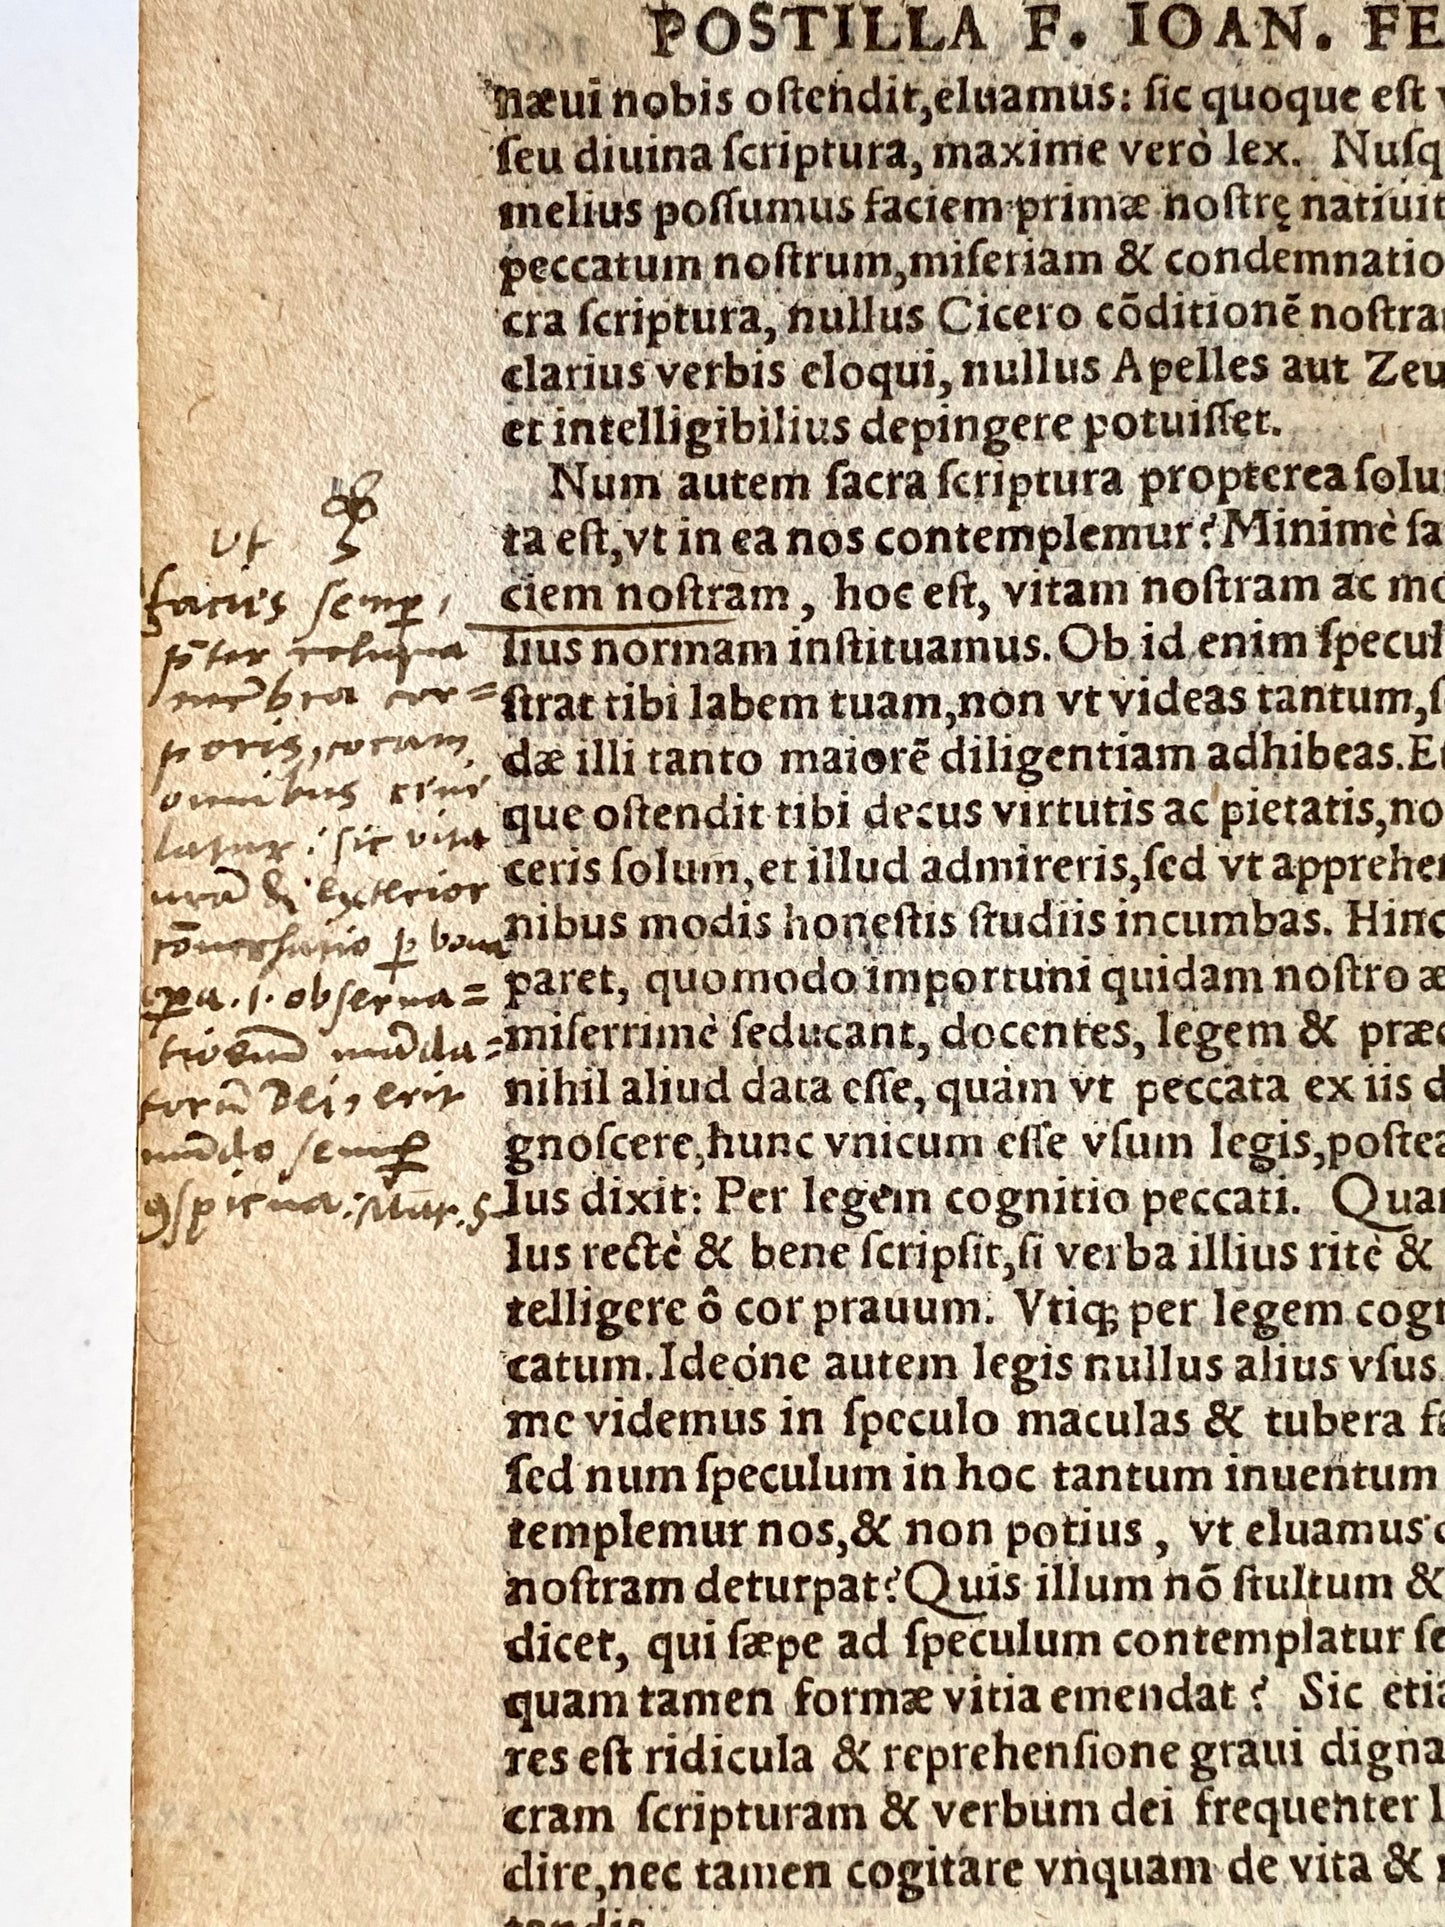 POSTILLA F. IOAN. FE
næui nobis oſtendit, eluamus: ſic quoque eſt v
ſeu diuina ſcriptura, maxime verò lex. Nuſq
melius poſſumus faciem primæ noſtrę natiuit
peccatum noſtrum, miſeriam & condemnatio
cra ſcriptura, nullus Cicero cōditionē noſtra
clarius verbis eloqui, nullus Apelles aut Zeu
et intelligibilius depingere potuiſſet.
Num autem ſacra ſcriptura propterea ſolu
ta eſt, vt in ea nos contemplemur? Minimè ſa
ciem noſtram, hoc eſt, vitam noſtram ac mo
lius normam inſtituamus. Ob id enim ſpecul
ſtrat tibi labem tuam, non vt videas tantum, ſ
dæ illi tanto maiorē diligentiam adhibeas. Et
que oſtendit tibi decus virtutis ac pietatis, no
ceris ſolum, et illud admireris, ſed vt apprehen
nibus modis honeſtis ſtudiis incumbas. Hinc
paret, quomodo importuni quidam noſtro æ
miſerrimè ſeducant, docentes, legem & præc
nihil aliud data eſſe, quàm vt peccata ex iis d
gnoſcere, hunc vnicum eſſe vſum legis, poſtea
lus dixit: Per legem cognitio peccati. Quan
lus rectè & bene ſcripſit, ſi verba illius ritè &
telligere ô cor prauum. Vtiq; per legem cogn
catum. Ideóne autem legis nullus alius vſus
me videmus in ſpeculo maculas & tubera fa
ſed num ſpeculum in hoc tantum inuentum
templemur nos, & non potius, vt eluamus
noſtram deturpat? Quis illum nō ſtultum &
dicet, qui ſæpe ad ſpeculum contemplatur ſe
quam tamen formæ vitia emendat? Sic etia
res eſt ridicula & reprehenſione graui digna
cram ſcripturam & verbum dei frequenter l
dire, nec tamen cogitare vnquam de vita &
tandis
vt
facies ſemp
p̄ter reliqua
mēbra cor=
poris, coram
omnibus
: ſic vita
nr̄a & exterior
cōuerſatio p bona
opa .i. obſerua=
tionem mãda=
torũ Dei, erit
mũdo ſemp
9ſpicua: Mat. 5